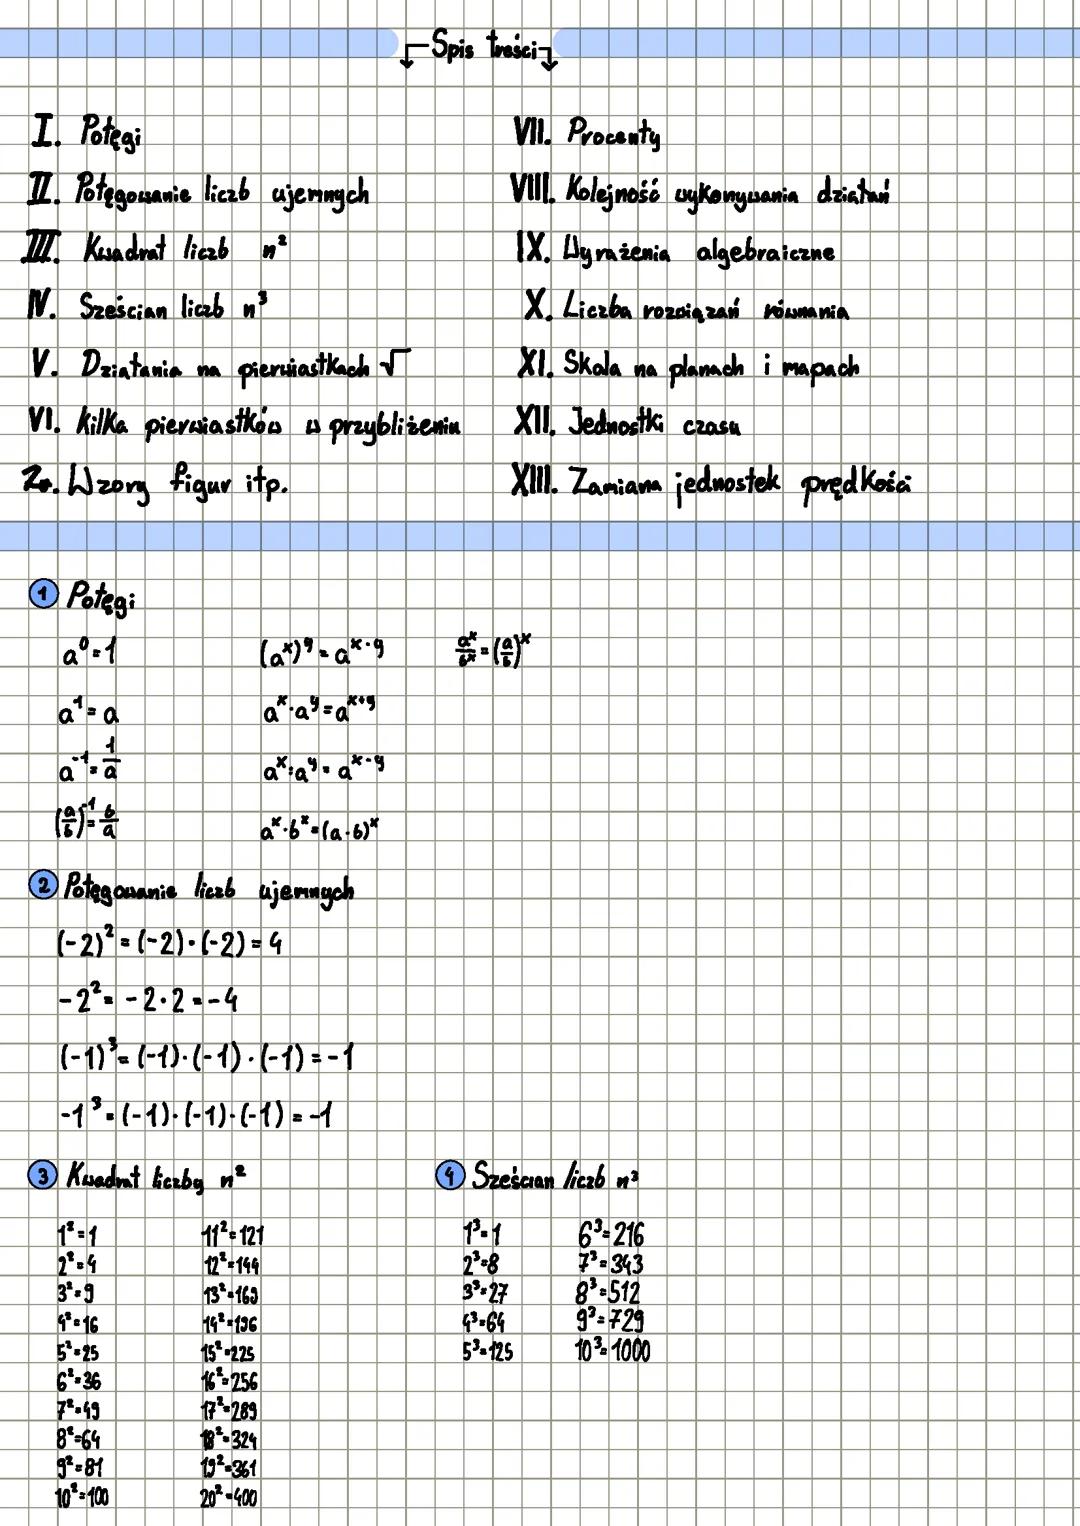 Spis treści
I. Potęgi
II. Potęgowanie liczb ujemnych
III. Kwadrat liczb n²
IV. Sześcian liczb n³
V. Działania na pierwiastkach √
VI. Kilka pierwiastków w przybliżeniu
Zo. Wzory figur itp.
VII. Procenty
VIII. Kolejność wykonywania działań
IX. Wyrażenia algebraiczne
X. Liczba rozwiązań równania
XI. Skala na planach i mapach
XII. Jednostki czasu
XIII. Zamiana jednostek prędkości
1 Potęgi
a⁰=1
a¹=a
a⁻¹=1/a
(a/b)⁻¹=b/a
(aˣ)ʸ=aˣ·ʸ
aˣ·aʸ=aˣ⁺ʸ
aˣ:aʸ=aˣ⁻ʸ
aˣ·bˣ=(a·b)ˣ
aˣ/bˣ=(a/b)ˣ
2 Potęgowanie liczb ujemnych
(-2)²=(-2)·(-2)=4
-2²=-2·2=-4
(-1)³=(-1)·(-1)·(-1)=-1
-1³=(-1)·(-1)·(-1)=-1
3 Kwadrat liczby n²
1²=1
2²=4
3²=9
4²=16
5²=25
6²=36
7²=49
8²=64
9²=81
10²=100
11²=121
12²=144
13²=169
14²=196
15²=225
16²=256
17²=289
18²=324
19²=361
20²=400
4 Sześcian liczb n³
1³=1
2³=8
3³=27
4³=64
5³=125
6³=216
7³=343
8³=512
9³=729
10³=1000